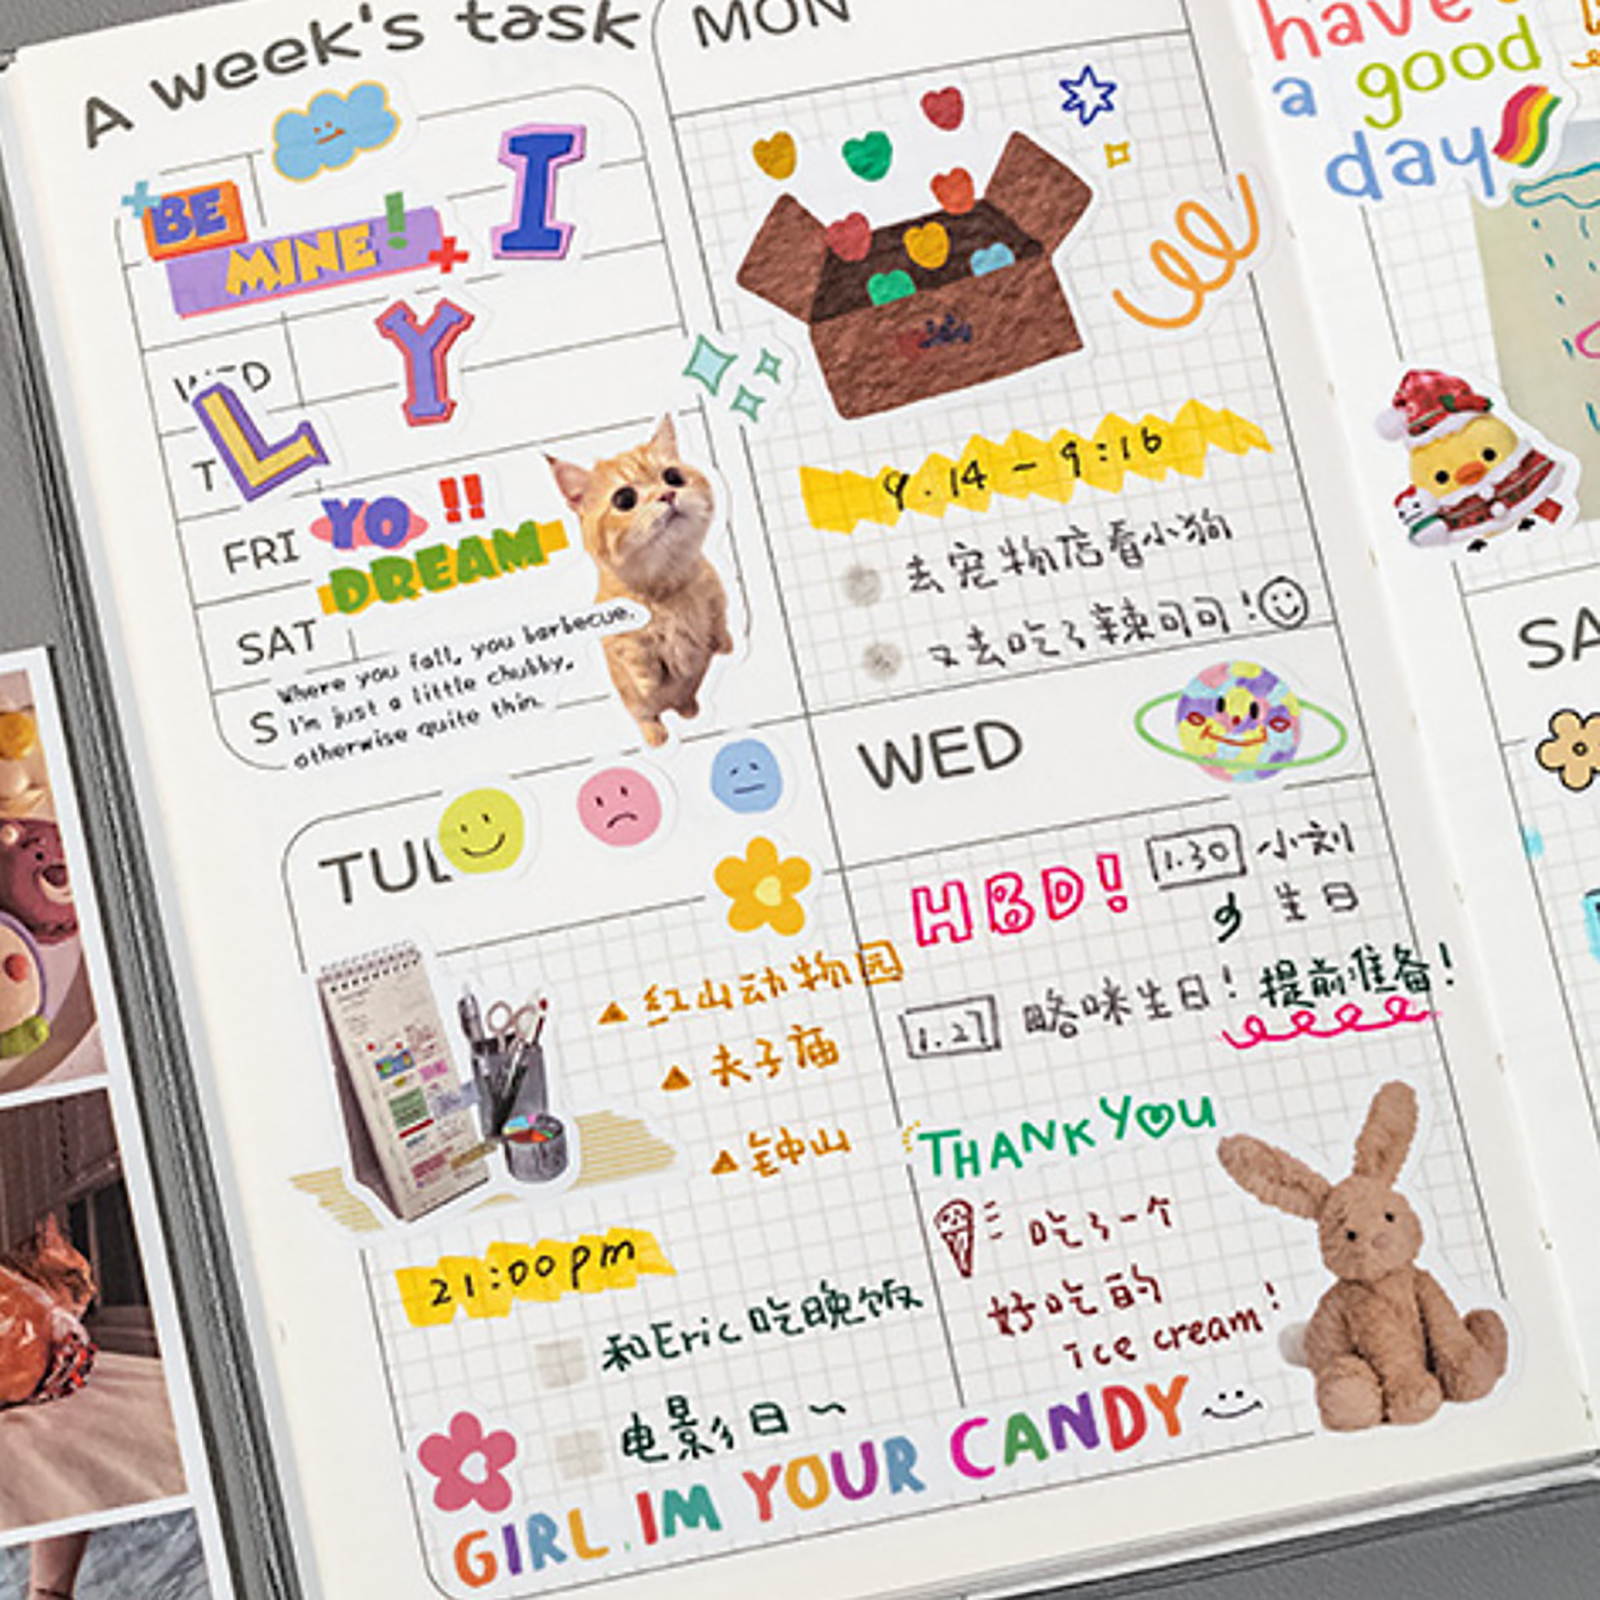 A week's task
BE
MINE!
I
L
Y
FRI
YO !!
DREAM
SAT
S
Where you fall, you barbecue.
I'm just a little chubby,
otherwise quite thin.
MON
9.14 - 9:16
去宠物店看小狗
又去吃了辣可可!
TU
红山动物园
夫子庙
钟山
21:00pm
和Eric吃晚饭
电影日~
GIRL, IM YOUR CANDY
WED
HBD!
1.30 小刘
生日
1.27 咪生日! 提前准备!
THANK YOU
吃了一个
好吃的
ice cream!
have
a good
day
SA